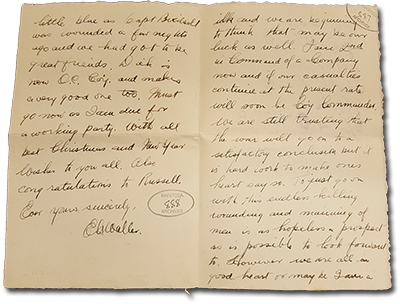 little blue as Capt Birdsall
was wounded a few nights
ago and we had got to be
great friends. Dick is
now O.C. Coy. and makes
a very good one too. Must
go now as I am due for
a working party. With all
best Christmas and New Year
wishes to you all. Also
congratulations to Russell.
Ever yours sincerely.
888
ARCHIVES
887
idle and we are beginning
to think that may be our
luck as well. I am 2nd
in Command of a Company
now and if our casualties
continue at the present rate
will soon be Coy Commander.
We are still trusting that
the war will go on to a
satisfactory conclusion but it
is hard work to make ones
heart say so. To just go on
with this endless killing
wounding and maiming of
men is as hopeless a prospect
as is possible to look forward
to. However we are all in
good heart or maybe I am a